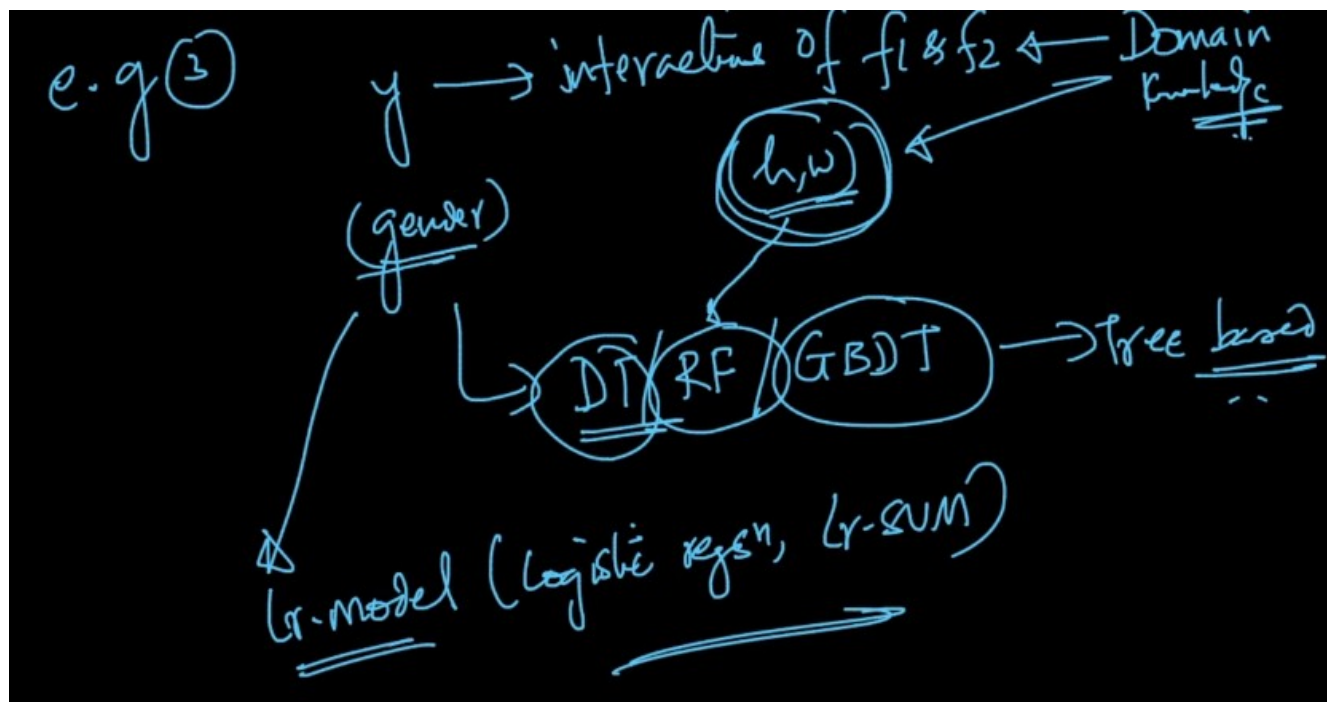 e.g ③ y → interactions of f1 & f2 ← Domain
Knowledge
(h,w)
(gender)
DT / RF / GBDT → Tree based
Lr-model (Logistic regsn, Lr-SVM)